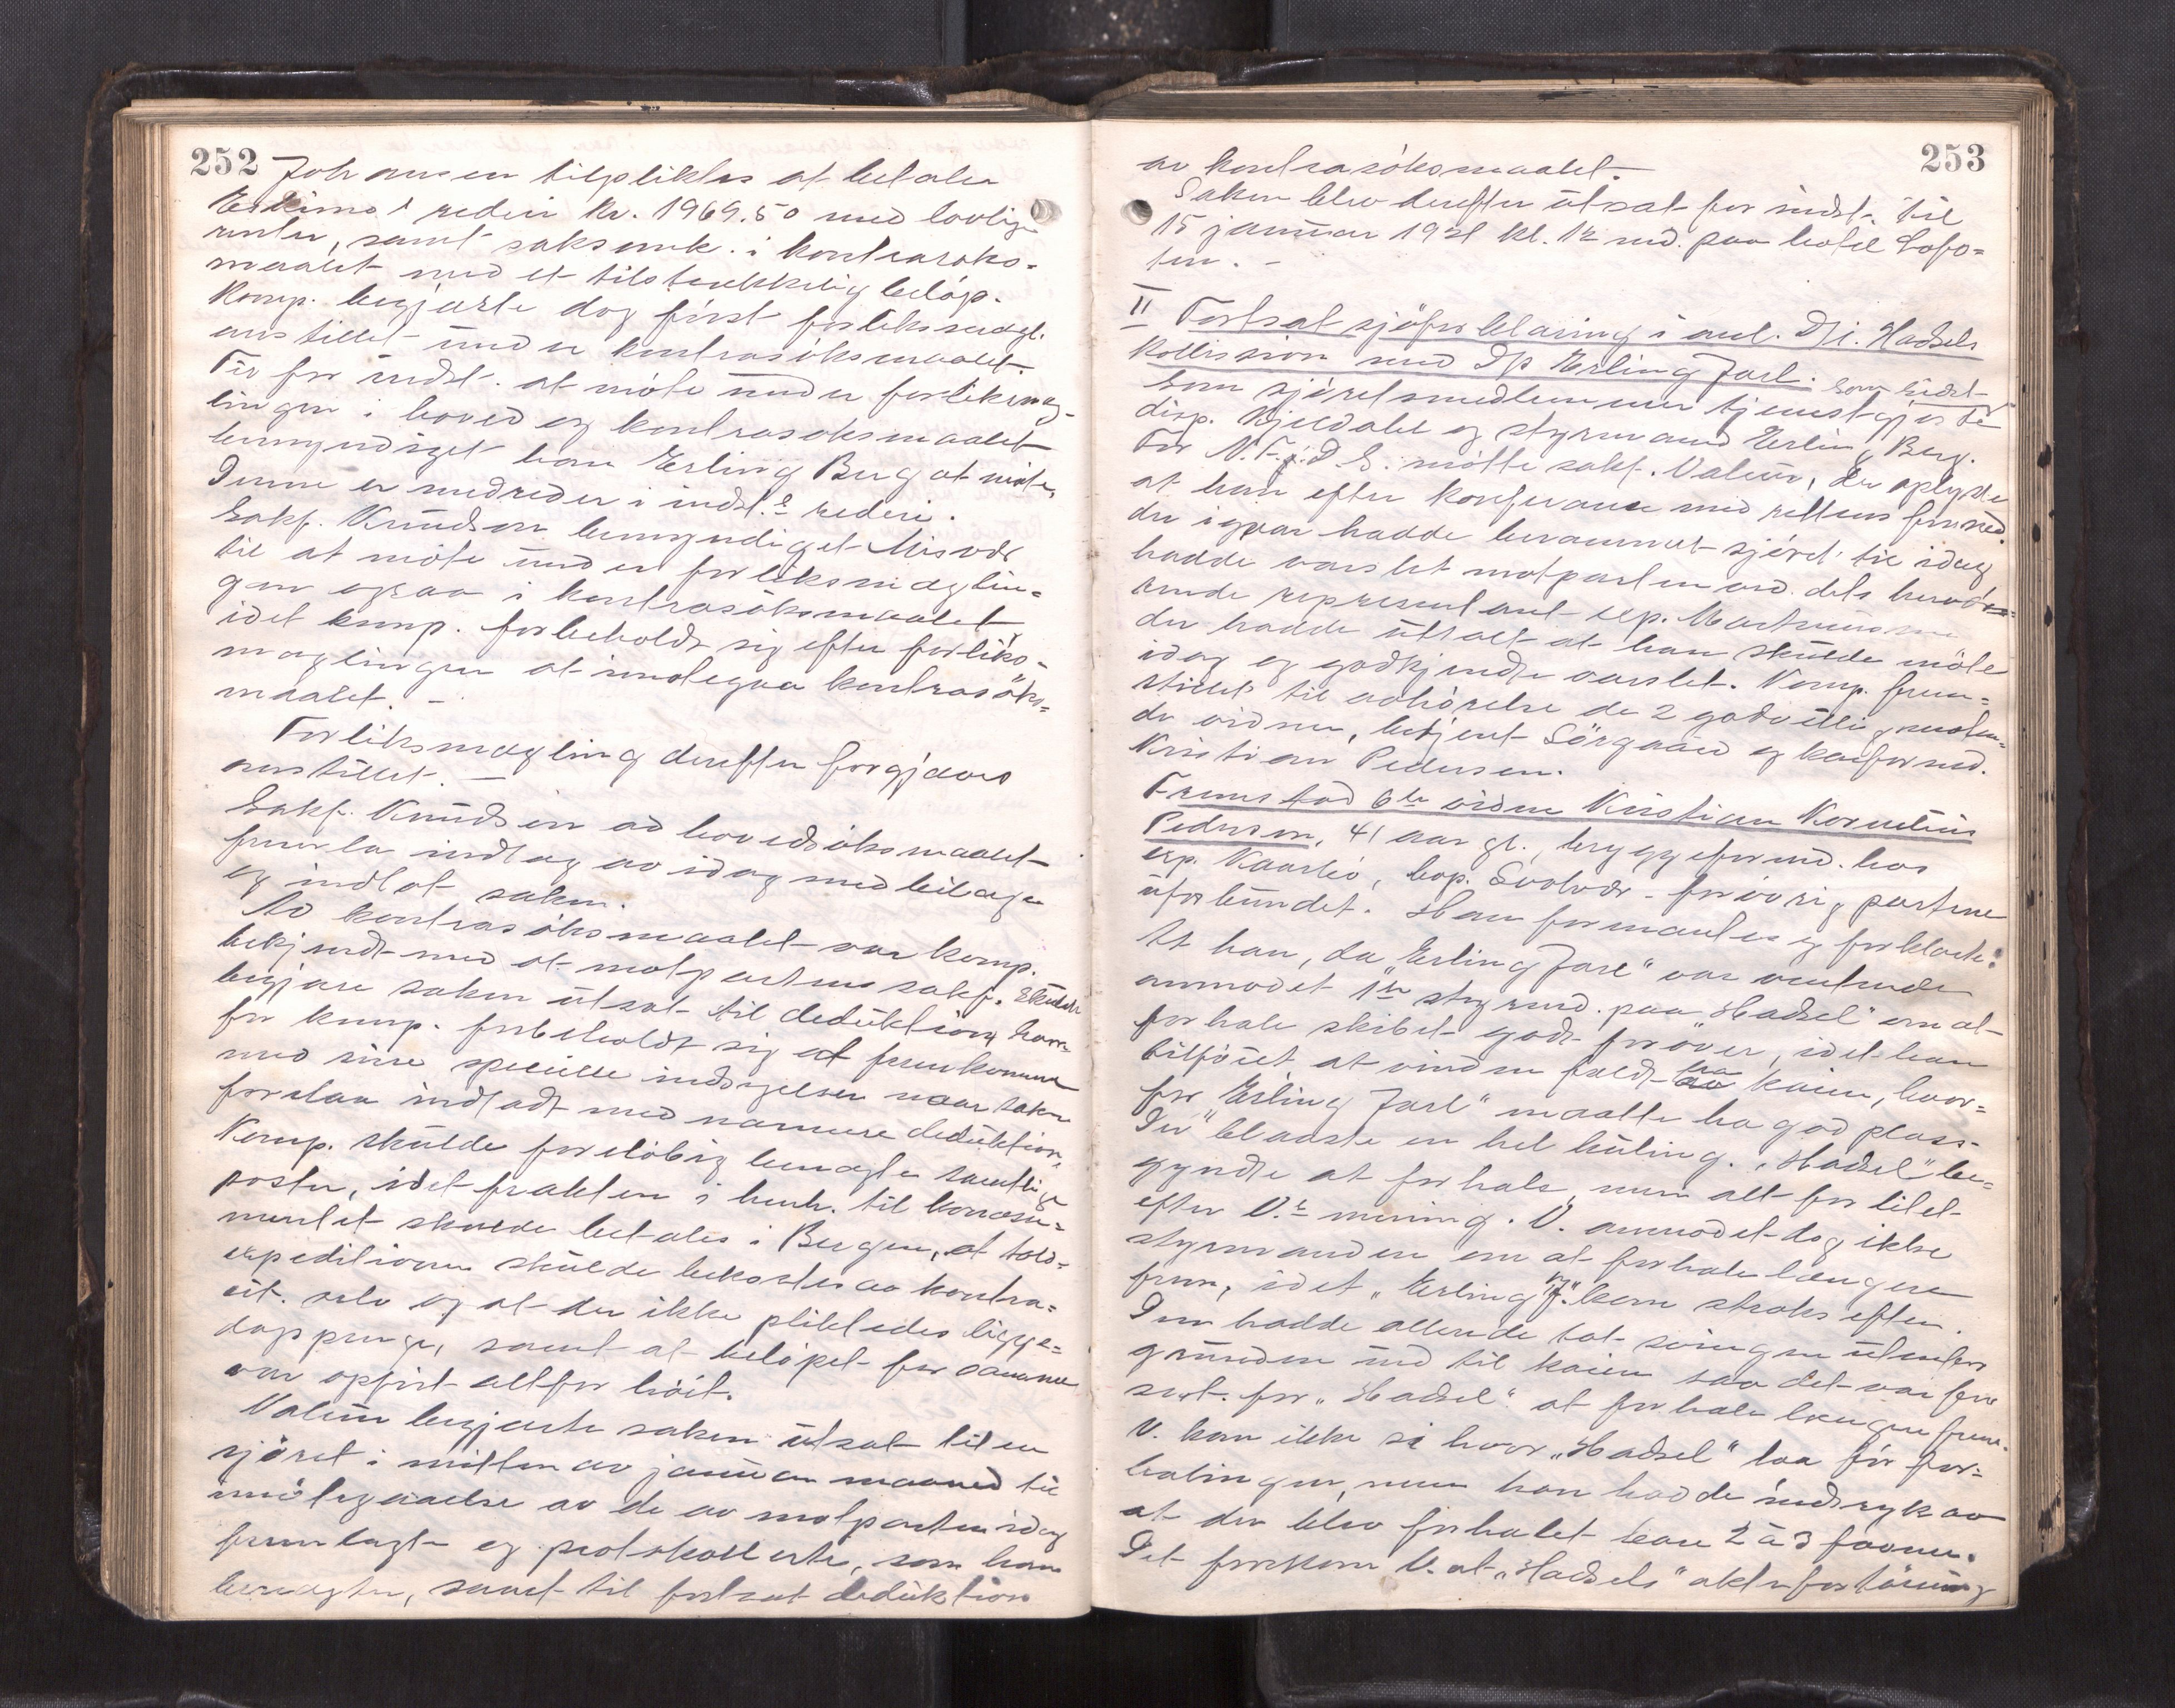 252
Johansen tilpliktes at betale
Eskimo's rederi kr. 1969.50 med lovlige
renter, samt saksomk. i kontrasöks=
maalet med et tilstrekkelig belöp.
Komp. begjærte dog först forliksmægl.
anstillet under kontrasöksmaalet
Til for indst. at möte under forliksmæg-
lingen i hoved og kontrasöksmaalet
bemyndiget han Erling Berg at möte,
Denne er medreder i indst.s rederi.
Sakf. Knudsen bemyndiget Misvær
til at möte under forliksmæglin=
gen ogsaa i kontrasöksmaalet
idet komp. forbeholdt sig efter forliks-
mæglingen at imötegaa kontrasöks=
maalet. -
Forliksmægling derefter forgjæves
anstillet. -
Sakf. Knudsen ad hovedsöksmaalet
fremla indlæg av idag med bilage
og indlot saken.
Ad kontrasöksmaalet var komp.
bekjendt med at motpartens sakf. skulde
begjære saken utsat til deduktion, hvor=
for komp. forbeholdt sig at fremkomme
med sine specielle indsigelser naar saken
forelaa indladt med nærmere deduktion,
Komp. skulde foreløbig benegte samtlige
poster, idet frakten i henh. til konosse=
mentet skulde betales i Bergen, at told=
expeditionen skulde bekostes av kontra=
cit. selv og at der ikke pliktedes ligge=
dagspenge, samt at belöpet for samme
var opfört altfor höit.
Valeur begjærte saken utsat til en
sjöret i mitten av januar maaned til
imötegaaelse av de av motparten idag
fremlagte og protokollerte, som han
benegter, samt til fortsat deduktion
253
av kontrasöksmaalet. -
Saken blev derefter utsat for indst. til
15 januar 1921 kl. 12 md. paa hotel Lofo=
ten. -
II Fortsat sjöforklaring i anl. D/s. Hadsels
kollission med D/s Erling Jarl. Som
som sjöretsmedlemmer tjenstgjorte
disp. Kjeldahl og styrmand Erling Berg.
For N.F.j.D.S. mötte sakf. Valeur, der oplyste
at han efter konferanse med rettens formd.
der igaar hadde berammet sjöret til idag
hadde varslet motparten ved dets hervæ=
rende representant exp. Martinussen
der hadde uttalt at han skulde möte
idag og godkjendte varslet. Komp. frem=
stillet til avhörelse de 2 godvillig möten=
de vidner, betjent Sörgaard og kaiformd.
Kristian Pedersen.
Fremstod 6te vidne Kristian Kornelius
Pedersen, 41 aar gl., bryggeformd. hos
exp. Kaarbö, bop. Svolvær - forövrig partene
uforbundet. Han formantes og forklarte:
At han, da "Erling Jarl" var ventende
anmodet 1ste styrmd. paa "Hadsel" om at
forhale skibet godt forover, idet han
tilföiet, at vinden faldt paa kaien, hvor=
for "Erling Jarl" maatte ha god plass.
Det blaaste en hel kuling. "Hadsel" be=
gyndte at forhale, men alt for litet
efter V.s mening. V. anmodet dog ikke
styrmanden om at forhale længere
frem, idet "Erling J." kom straks efter.
Den hadde allerede tat svingen utenfor
grunden ind til kaien saa det var for
sent for "Hadsel" at forhale længere frem.
V. kan ikke si hvor "Hadsel" laa för for=
halingen, men han hadde indtryk av
at der blev forhalet bare 2 à 3 favner.
Det forekom V. at "Hadsels" akterfortöining